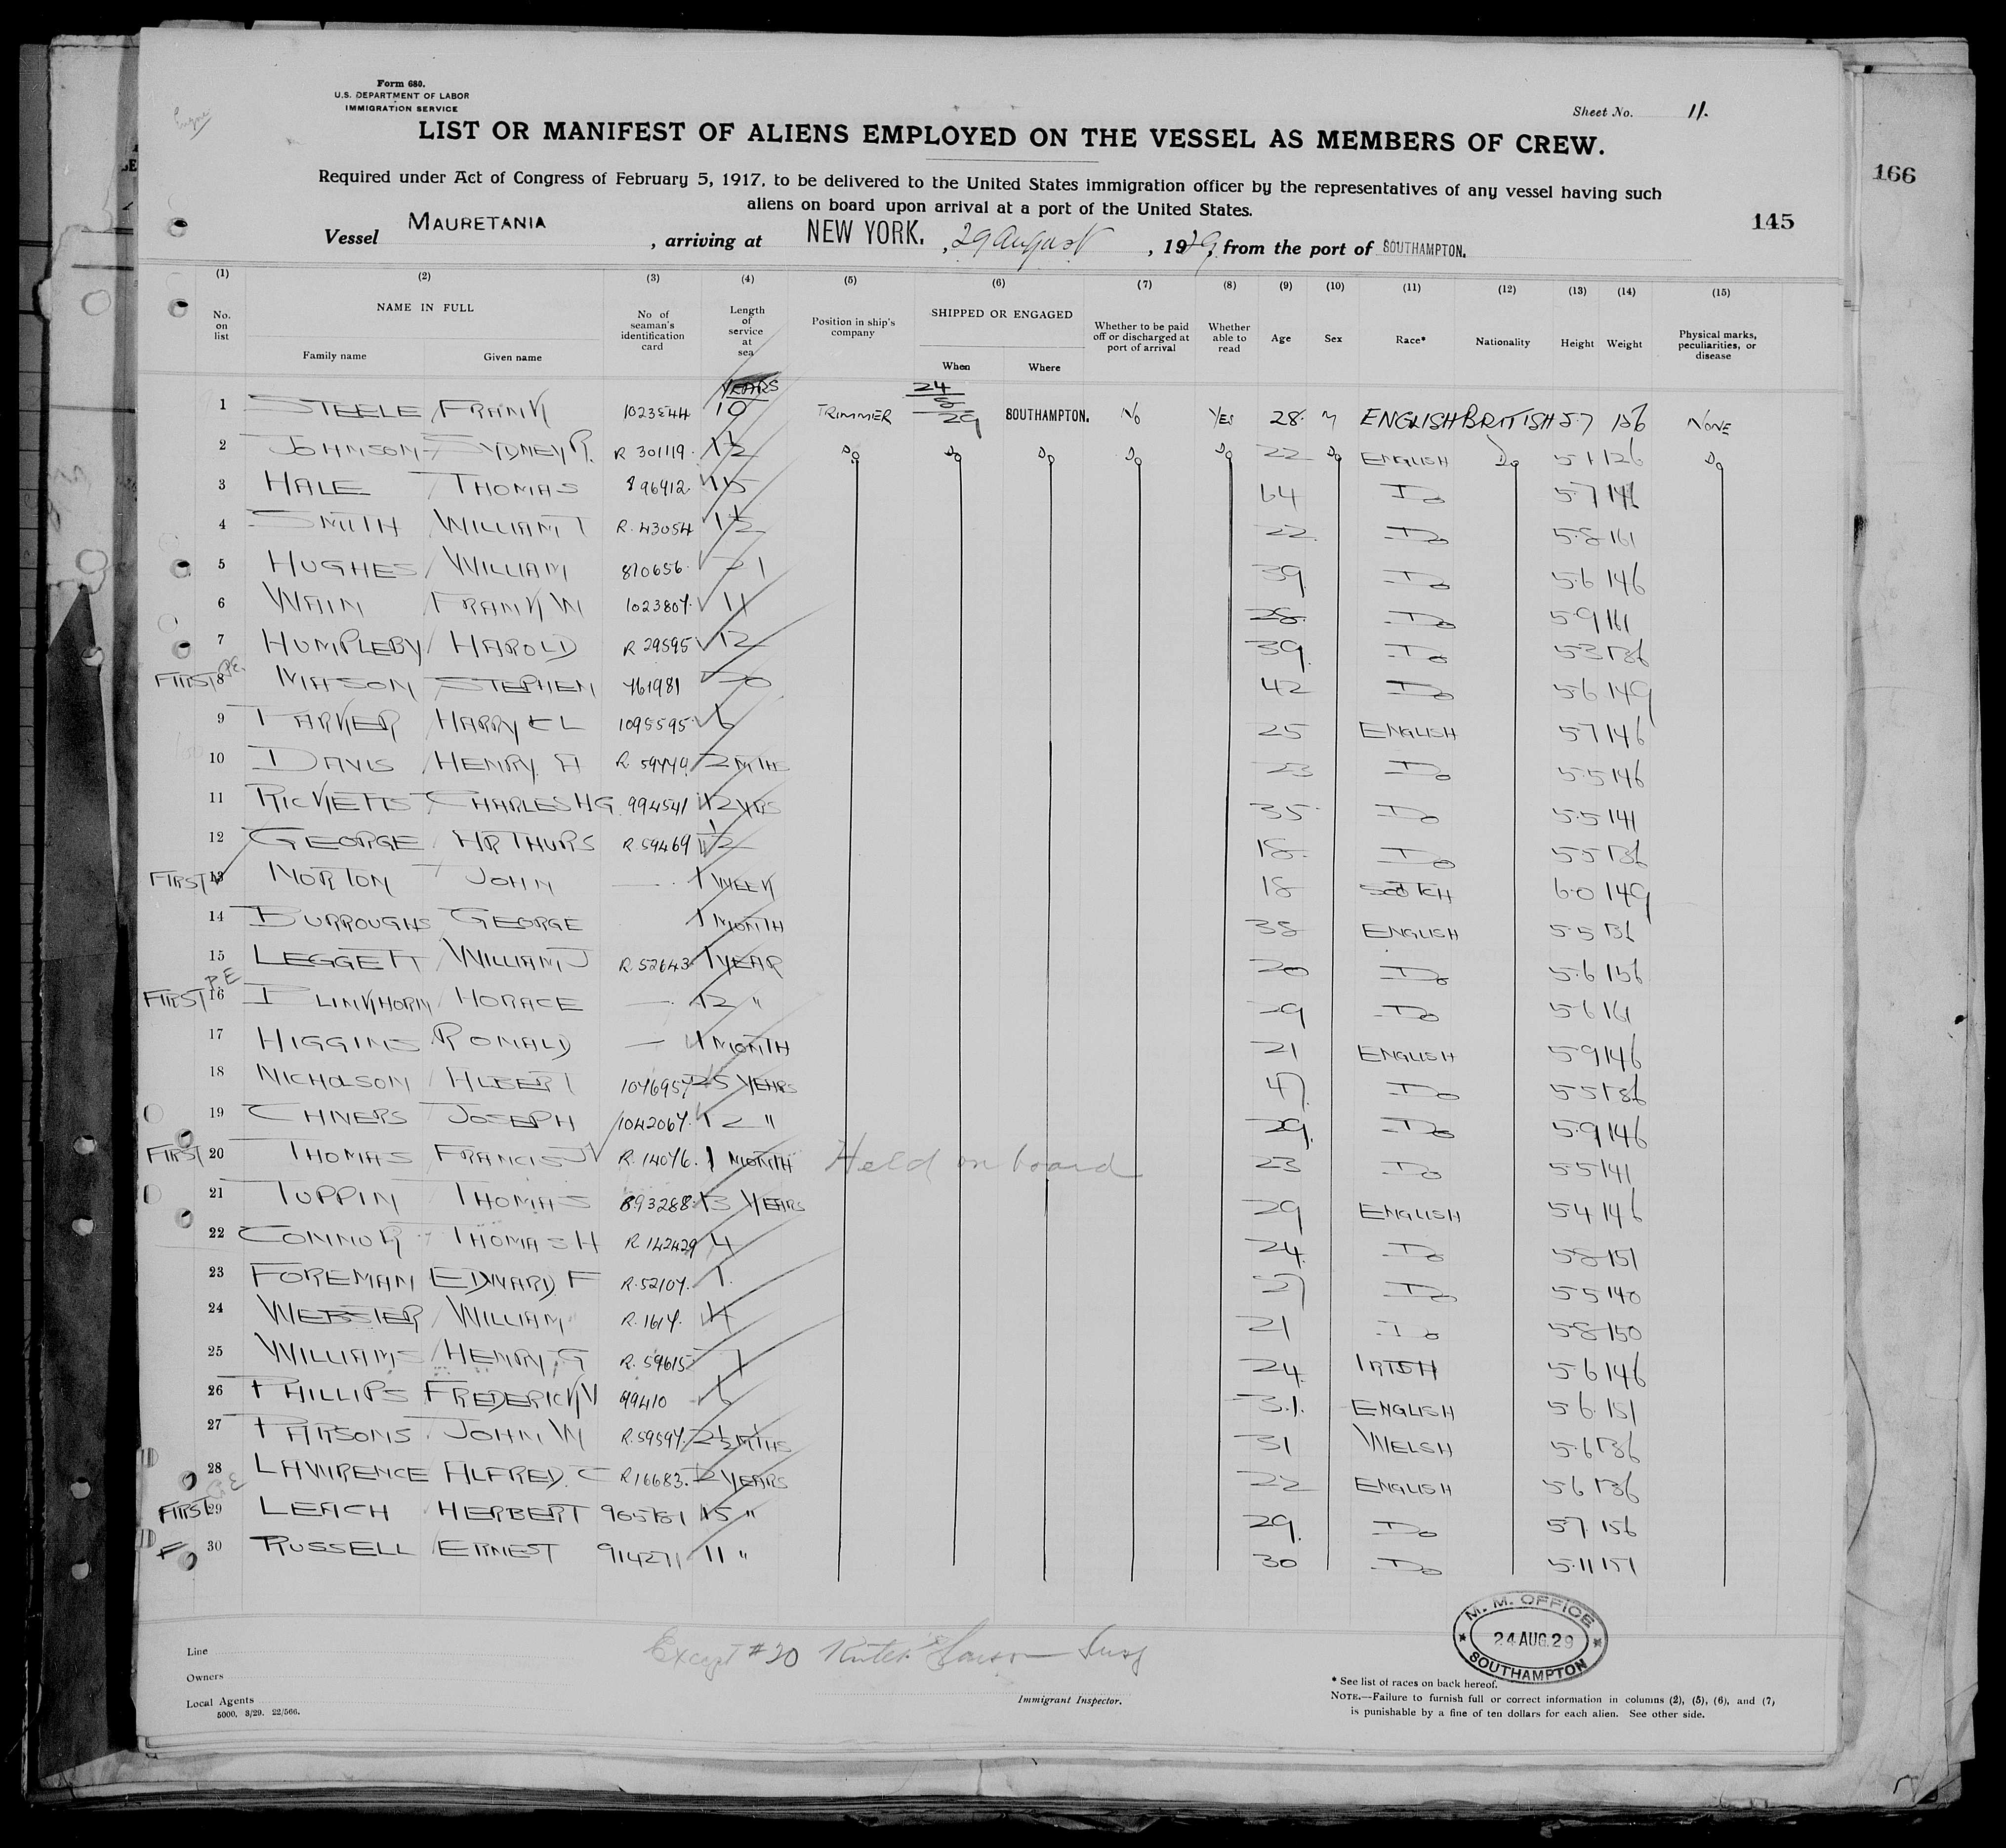 Form 680.
U.S. DEPARTMENT OF LABOR
IMMIGRATION SERVICE
Sheet No. 11.
LIST OR MANIFEST OF ALIENS EMPLOYED ON THE VESSEL AS MEMBERS OF CREW.
Required under Act of Congress of February 5, 1917, to be delivered to the United States immigration officer by the representatives of any vessel having such
aliens on board upon arrival at a port of the United States.
166
145
Vessel MAURETANIA, arriving at NEW YORK., 29 August, 1929, from the port of SOUTHAMPTON.
(1) (2) (3) (4) (5) (6) (7) (8) (9) (10) (11) (12) (13) (14) (15)
No. on list NAME IN FULL Family name Given name No of seaman's identification card Length of service at sea Position in ship's company SHIPPED OR ENGAGED When Where Whether to be paid off or discharged at port of arrival Whether able to read Age Sex Race* Nationality Height Weight Physical marks, peculiarities, or disease
YEARS
1 STEELE FRANK 1023544 10 TRIMMER 24/8/29 SOUTHAMPTON. No YES 28 M ENGLISH BRITISH 5.7 156 NONE
2 JOHNSON SYDNEY R. R 301119 1½ Do Do Do Do Do 22 Do ENGLISH Do 5.1 126 Do
3 HALE THOMAS 896912 15 64 Do 5.7 146
4 SMITH WILLIAM T R. 43054 1½ 22 Do 5.8 161
5 HUGHES WILLIAM 810656 21 39 Do 5.6 146
6 WAIN FRANK W 1023807 11 28 Do 5.9 161
7 HUMPLEBY HAROLD R 29595 12 39 Do 5.3 136
FIRST P.E. 8 MASON STEPHEN 761981 20 42 Do 5.6 149
9 PARKER HARRY C L 1095595 6 25 ENGLISH 5.7 146
10 DAVIS HENRY. A R. 59440 2 MTHS 23 Do 5.5 146
11 RICKETTS CHARLES H G 994541 12 YRS 35 Do 5.5 141
12 GEORGE ARTHUR S R. 59469 1½ 18 Do 5.5 136
FIRST 13 NORTON JOHN — 1 WEEK 18 SCOTCH 6.0 149
14 BURROUGHS GEORGE 1 MONTH 38 ENGLISH 5.5 136
15 LEGGETT WILLIAM J R. 52643 1 YEAR 20 Do 5.6 156
FIRST P.E 16 BLINKHORN HORACE — 12 " 29 Do 5.6 161
17 HIGGINS RONALD — 1 MONTH 21 ENGLISH 5.9 146
18 NICHOLSON ALBERT 1076957 25 YEARS 47 Do 5.5 136
19 CHIVERS JOSEPH 1042067. 12 " 29. Do 5.9 146
FIRST 20 THOMAS FRANCIS J R. 14076. 1 MONTH Held on board 23 Do 5.5 141
21 TUPPIN THOMAS 893288 13 YEARS 29 ENGLISH 5.4 146
22 CONNOR THOMAS H R. 142429 4 24. Do 5.8 151
23 FOREMAN EDWARD F R. 52107. 1. Do 5.5 140
24 WEBSTER WILLIAM R. 1617. 4 21 Do 5.8 150
25 WILLIAMS HENRY. G R. 59615 7 24. IRISH 5.6 146
26 PHILLIPS FREDERICK 99410 6 31. ENGLISH 5.6 151
27 PARSONS JOHN W R. 59597. 2½ MTHS 31 WELSH 5.6 136
28 LAWRENCE ALFRED. C R 16683. 2 YEARS 22 ENGLISH 5.6 136
FIRST P.E 29 LEACH HERBERT 965781 15 " 29. Do 5.7 156
F 30 RUSSELL ERNEST 914271 11 " 30 Do 5.11 151
Line
Owners
Local Agents
5000. 3/29. 22/566.
Except #20
Immigrant Inspector.
M. M. OFFICE
24 AUG. 29
SOUTHAMPTON
* See list of races on back hereof.
NOTE.—Failure to furnish full or correct information in columns (2), (5), (6), and (7)
is punishable by a fine of ten dollars for each alien. See other side.